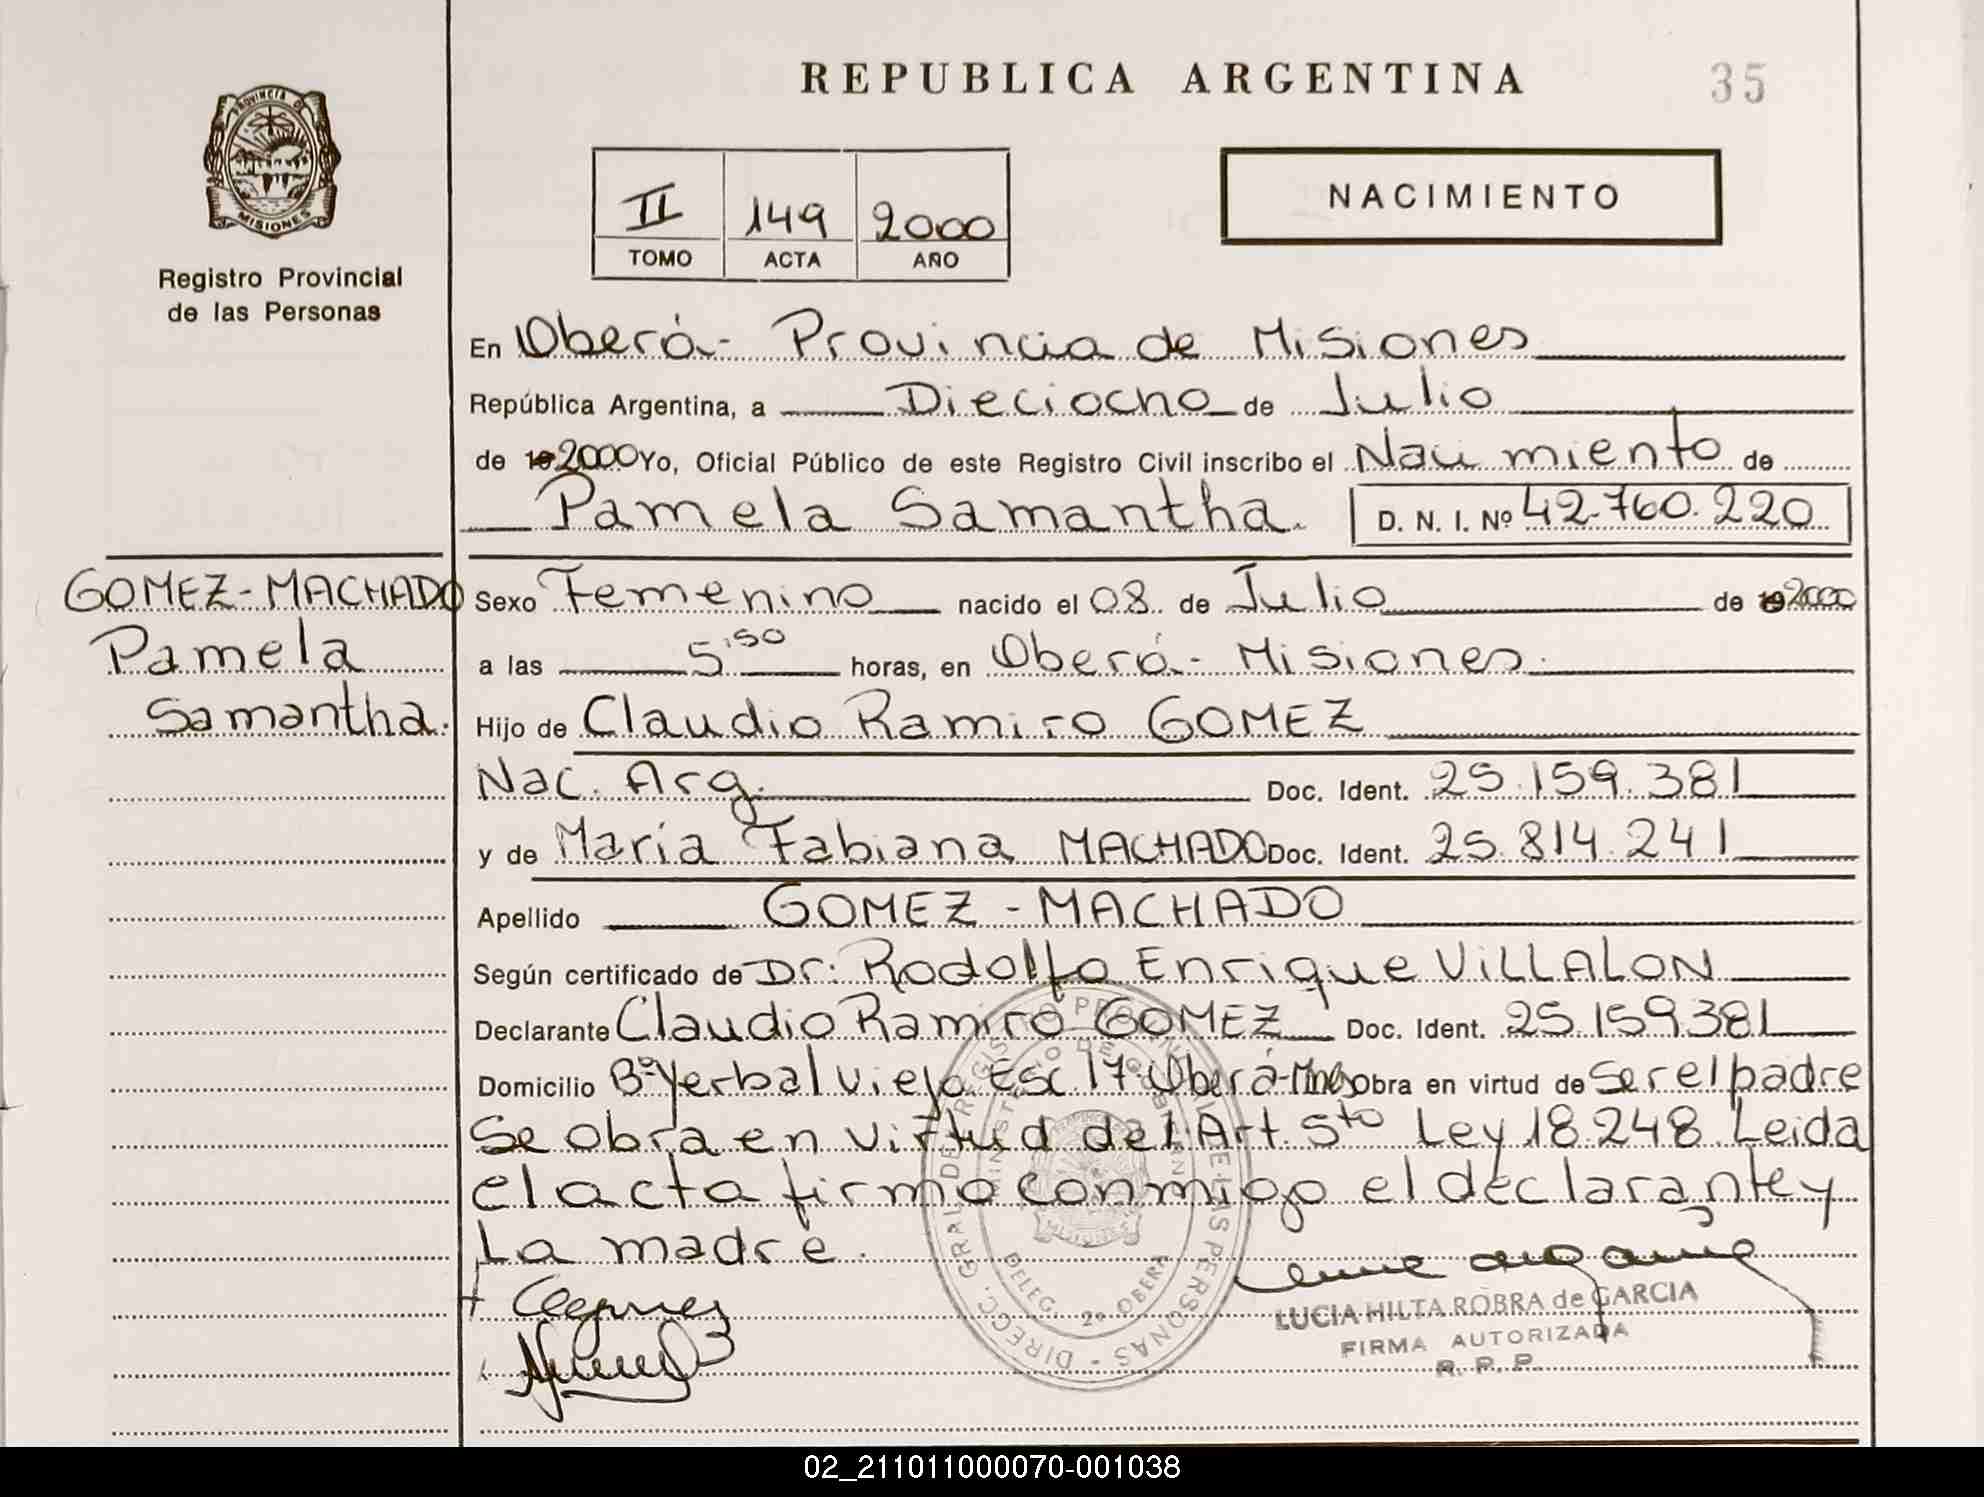 REPUBLICA ARGENTINA
35
PROVINCIA DE
MISIONES
Registro Provincial
de las Personas
II 149 2000
TOMO ACTA AÑO
NACIMIENTO
En Oberá- Provincia de Misiones
República Argentina, a Dieciocho de Julio
de 19 2000 Yo, Oficial Público de este Registro Civil inscribo el Nacimiento de
Pamela Samantha. D. N. I. Nº 42.760.220
GOMEZ-MACHADO
Pamela
Samantha.
Sexo Femenino nacido el 08 de Julio de 19 2000
a las 5,50 horas, en Oberá- Misiones.
Hijo de Claudio Ramiro GOMEZ
Nac. Arg. Doc. Ident. 25.159.381
y de María Fabiana MACHADO Doc. Ident. 25.814.241
Apellido GOMEZ - MACHADO
Según certificado de Dr: Rodolfo Enrique VILLALON
Declarante Claudio Ramiro GOMEZ Doc. Ident. 25.159.381
Domicilio Bº Yerbal viejo Esc 17-Oberá-Mnes Obra en virtud de ser el padre
Se obra en virtud del Art. 5to Ley 18.248 Leida
el acta firma conmigo el declarante y
La madre.
DIRECC. GRAL. DEL REGISTRO PROVINCIAL DE LAS PERSONAS
MINISTERIO DE GOBIERNO
MISIONES
DELEG. 2º OBERA
LUCIA HILTA ROBRA de GARCIA
FIRMA AUTORIZADA
R. P. P.
02_211011000070-001038